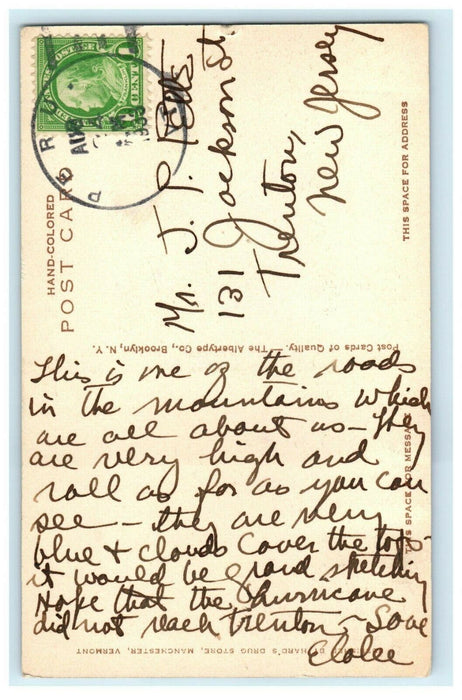 HAND-COLORED
POST CARD
U.S. POSTAGE
1 CENT 1
Mr. J. P. Betts
131 Jackson St
Trenton,
New Jersey
THIS SPACE FOR ADDRESS
Post Cards of Quality.—The Albertype Co., Brooklyn, N. Y.
THIS SPACE FOR MESSAGE
This is one of the roads
in the mountains which
are all about us — They
are very high and
roll as far as you can
see — they are very
blue & clouds cover the tops
it would be grand sketching
Hope that the hurricane
did not reach Trenton — Love
HARD'S DRUG STORE, MANCHESTER, VERMONT